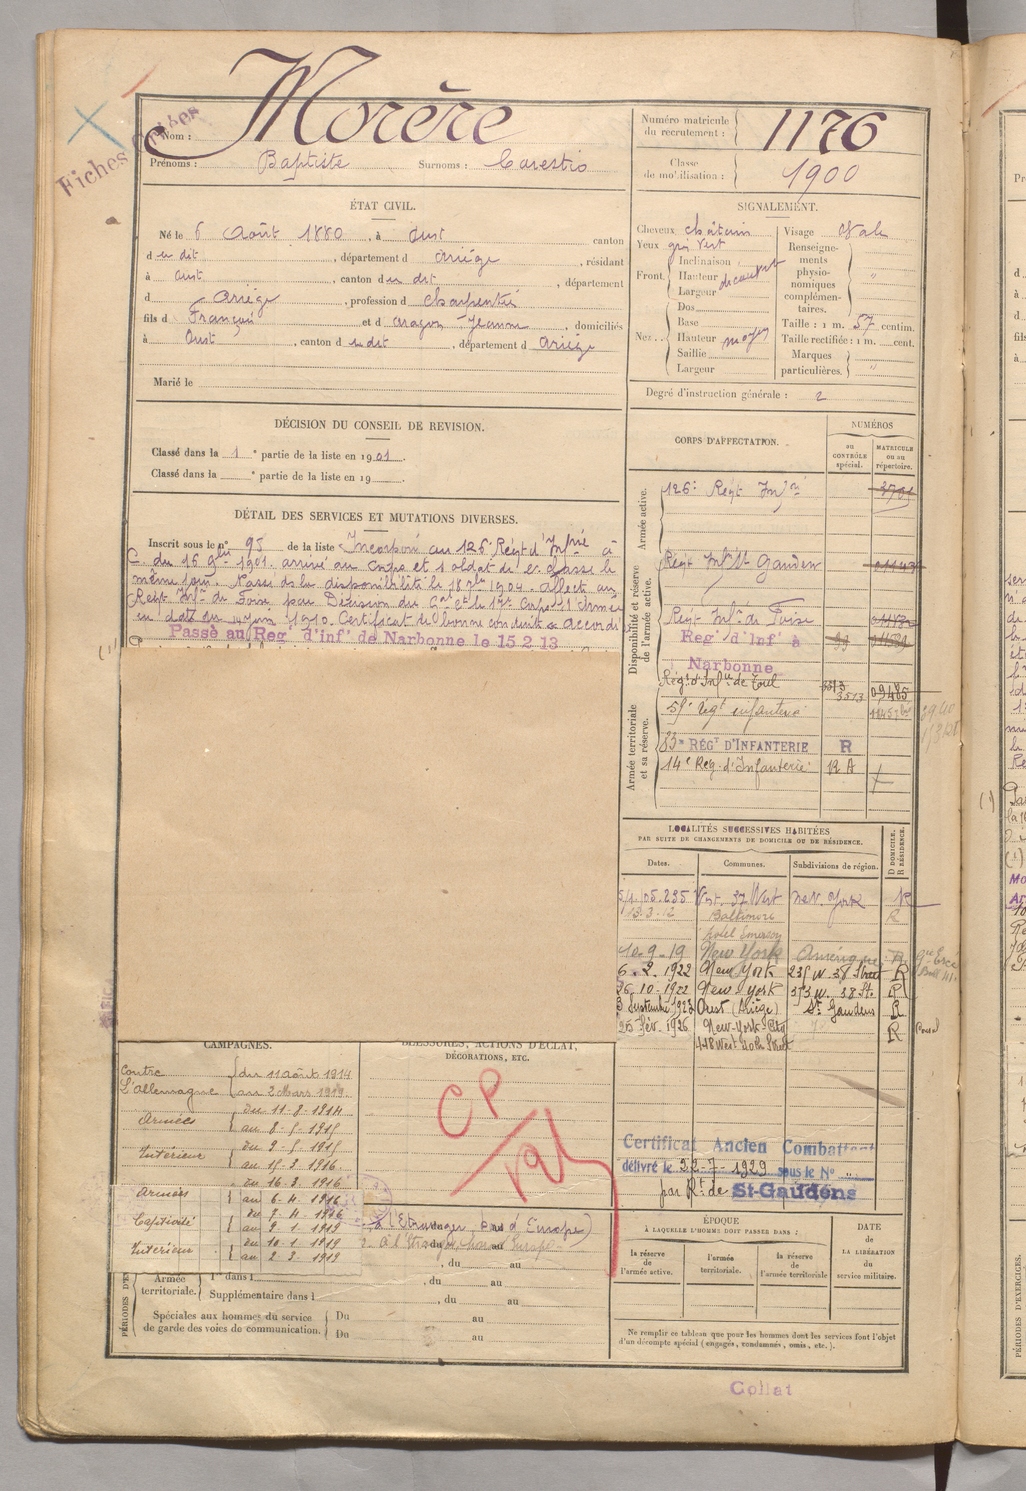 Fiches
Nom : Morère
Prénoms : Baptiste Surnoms :
Numéro matricule du recrutement : 1176
Classe de mobilisation : 1900
ÉTAT CIVIL.
Né le 6 Août 1880, à Oust canton
d u dit, département d Ariège, résidant
à Oust, canton d u dit, département
d Ariège, profession d Charpentier
fils d François et d Jeanne, domiciliés
à Oust, canton d u dit, département d Ariège
Marié le
SIGNALEMENT.
Cheveux châtain
Yeux gris vert
Front.
Inclinaison
Hauteur découvert
Largeur
Nez..
Dos
Base
Hauteur moyen
Saillie
Largeur
Visage Ovale
Renseignements physionomiques complémentaires.
"
Taille : 1 m. 57 centim.
Taille rectifiée : 1 m. cent.
Marques particulières. "
Degré d'instruction générale : 2
DÉCISION DU CONSEIL DE REVISION.
Classé dans la 1 e partie de la liste en 1901.
Classé dans la e partie de la liste en 19
CORPS D'AFFECTATION.
NUMÉROS
au CONTRÔLE spécial.
MATRICULE ou au répertoire.
Armée active.
126e Régt Infrie
Disponibilité et réserve de l'armée active.
Régt Infie St Gaudens
Régt Infie de Foix
Reg' d'Inf' à
Narbonne
Armée territoriale et sa réserve.
Régt d'Infie de Toul 3513 09485
59e Regt infanterie
83me RÉGT D'INFANTERIE R
14e Reg. d'Infanterie R A
DÉTAIL DES SERVICES ET MUTATIONS DIVERSES.
Inscrit sous le n° 95 de la liste Incorporé au 126e Régt d'Infrie à
C. du 16 9bre 1901. arrivé au corps et soldat de 2e classe le
même jour. Passé ds la disponibilité le 18 7bre 1904. Affecté au
Régt Infie de Foix par Décision du Gal Ct le 17e Corps d'Armée
en date du 14 juin 1910. Certificat de bonne conduite accordé
Passé au Reg d'inf' de Narbonne le 15 2 13
LOCALITÉS SUCCESSIVES HABITÉES
PAR SUITE DE CHANGEMENTS DE DOMICILE OU DE RÉSIDENCE.
Dates. Communes. Subdivisions de région. D DOMICILE. R RÉSIDENCE.
235 West. 37 West New York R
13.3.12 Baltimore R
Hotel Emerson
10-9-19 New York Amérique R
6. 2. 1922 New York 235 W. 38 Street R
26. 10. 1922 New-York 353 W. 38 St. R
Oust (Ariège) St Gaudens R
26 Fév. 1926 New-York-City R
448 West 40th Street
CAMPAGNES.
Contre l'Allemagne
du 11 août 1914
au 2 Mars 1919.
Armées
du 11-8-1914
au 8-5-1915
Intérieur
du 9-5-1915
au 15-3-1916.
Armées
du 16-3-1916
au 6-4-1916
Captivité
du 7-4-1916
au 9-1-1919
Intérieur
du 10-1-1919
au 2-3-1919
BLESSURES, ACTIONS D'ÉCLAT, DÉCORATIONS, ETC.
CP
Certificat Ancien Combattant
délivré le 22-7-1929 sous le N°
par Rt de St-Gaudens
à l'Etranger, hors d'Europe)
à l'Étranger, hors d'Europe
, du au
PÉRIODES D'EX
Armée territoriale.
1re dans l , du au
Supplémentaire dans l , du au
Spéciales aux hommes du service de garde des voies de communication.
Du au
Du au
ÉPOQUE
À LAQUELLE L'HOMME DOIT PASSER DANS :
la réserve de l'armée active.
l'armée territoriale.
la réserve de l'armée territoriale
DATE DE LA LIBÉRATION du service militaire.
Ne remplir ce tableau que pour les hommes dont les services font l'objet
d'un décompte spécial (engagés, condamnés, omis, etc.).
Collat
PÉRIODES D'EXERCICES.